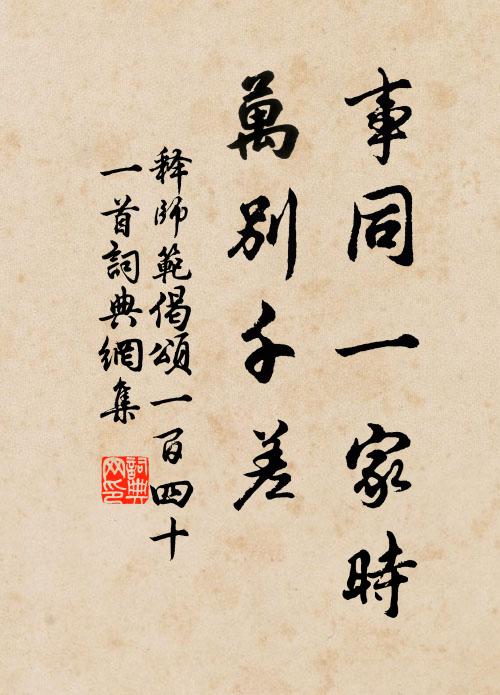 事同一家時
萬別千差
释師範偈頌一百四十
一首詞典網集
詞典
网印